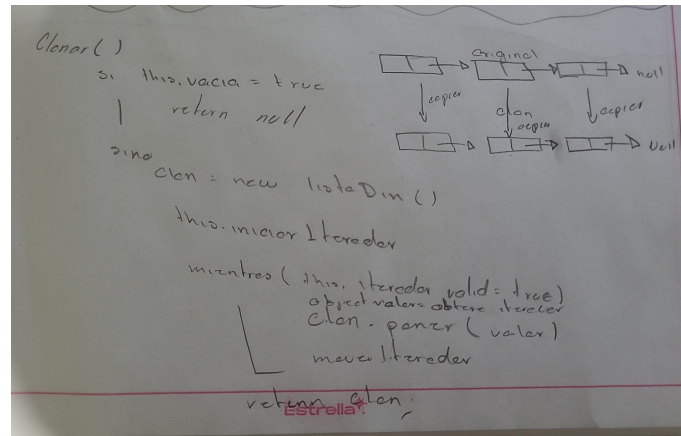 Clonar()
si this.vacia = true
return null
sino
clon = new listaDin()
this.iniciar Iterador
mientras (this. iterador valid = true)
object valor = obtere iterador
clon.poner(valor)
mover Iterador
return clon;
original
null
copiar
clon
copiar
copiar
null
Estrella